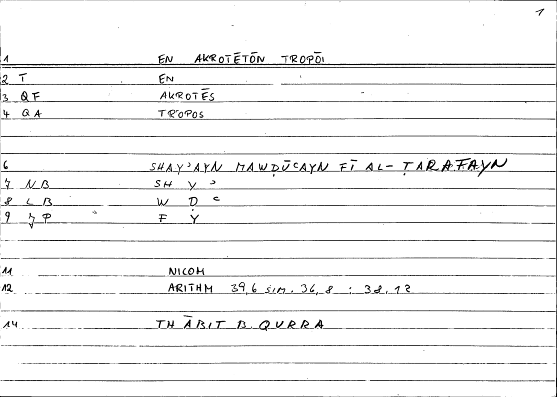 1
1 EN AKROTĒTŌN TROPŌI
2 T EN
3 QF AKROTĒS
4 QA TROPOS
6 SHAYʾAYN MAWḌŪʿAYN FĪ AL-ṬARAFAYN
7 NB SH Y ʾ
8 LB W Ḍ ʿ
9 F Y
11 NICOM
12 ARITHM 39,6 SIM. 36,8 ; 38.12
14 THĀBIT B. QURRA